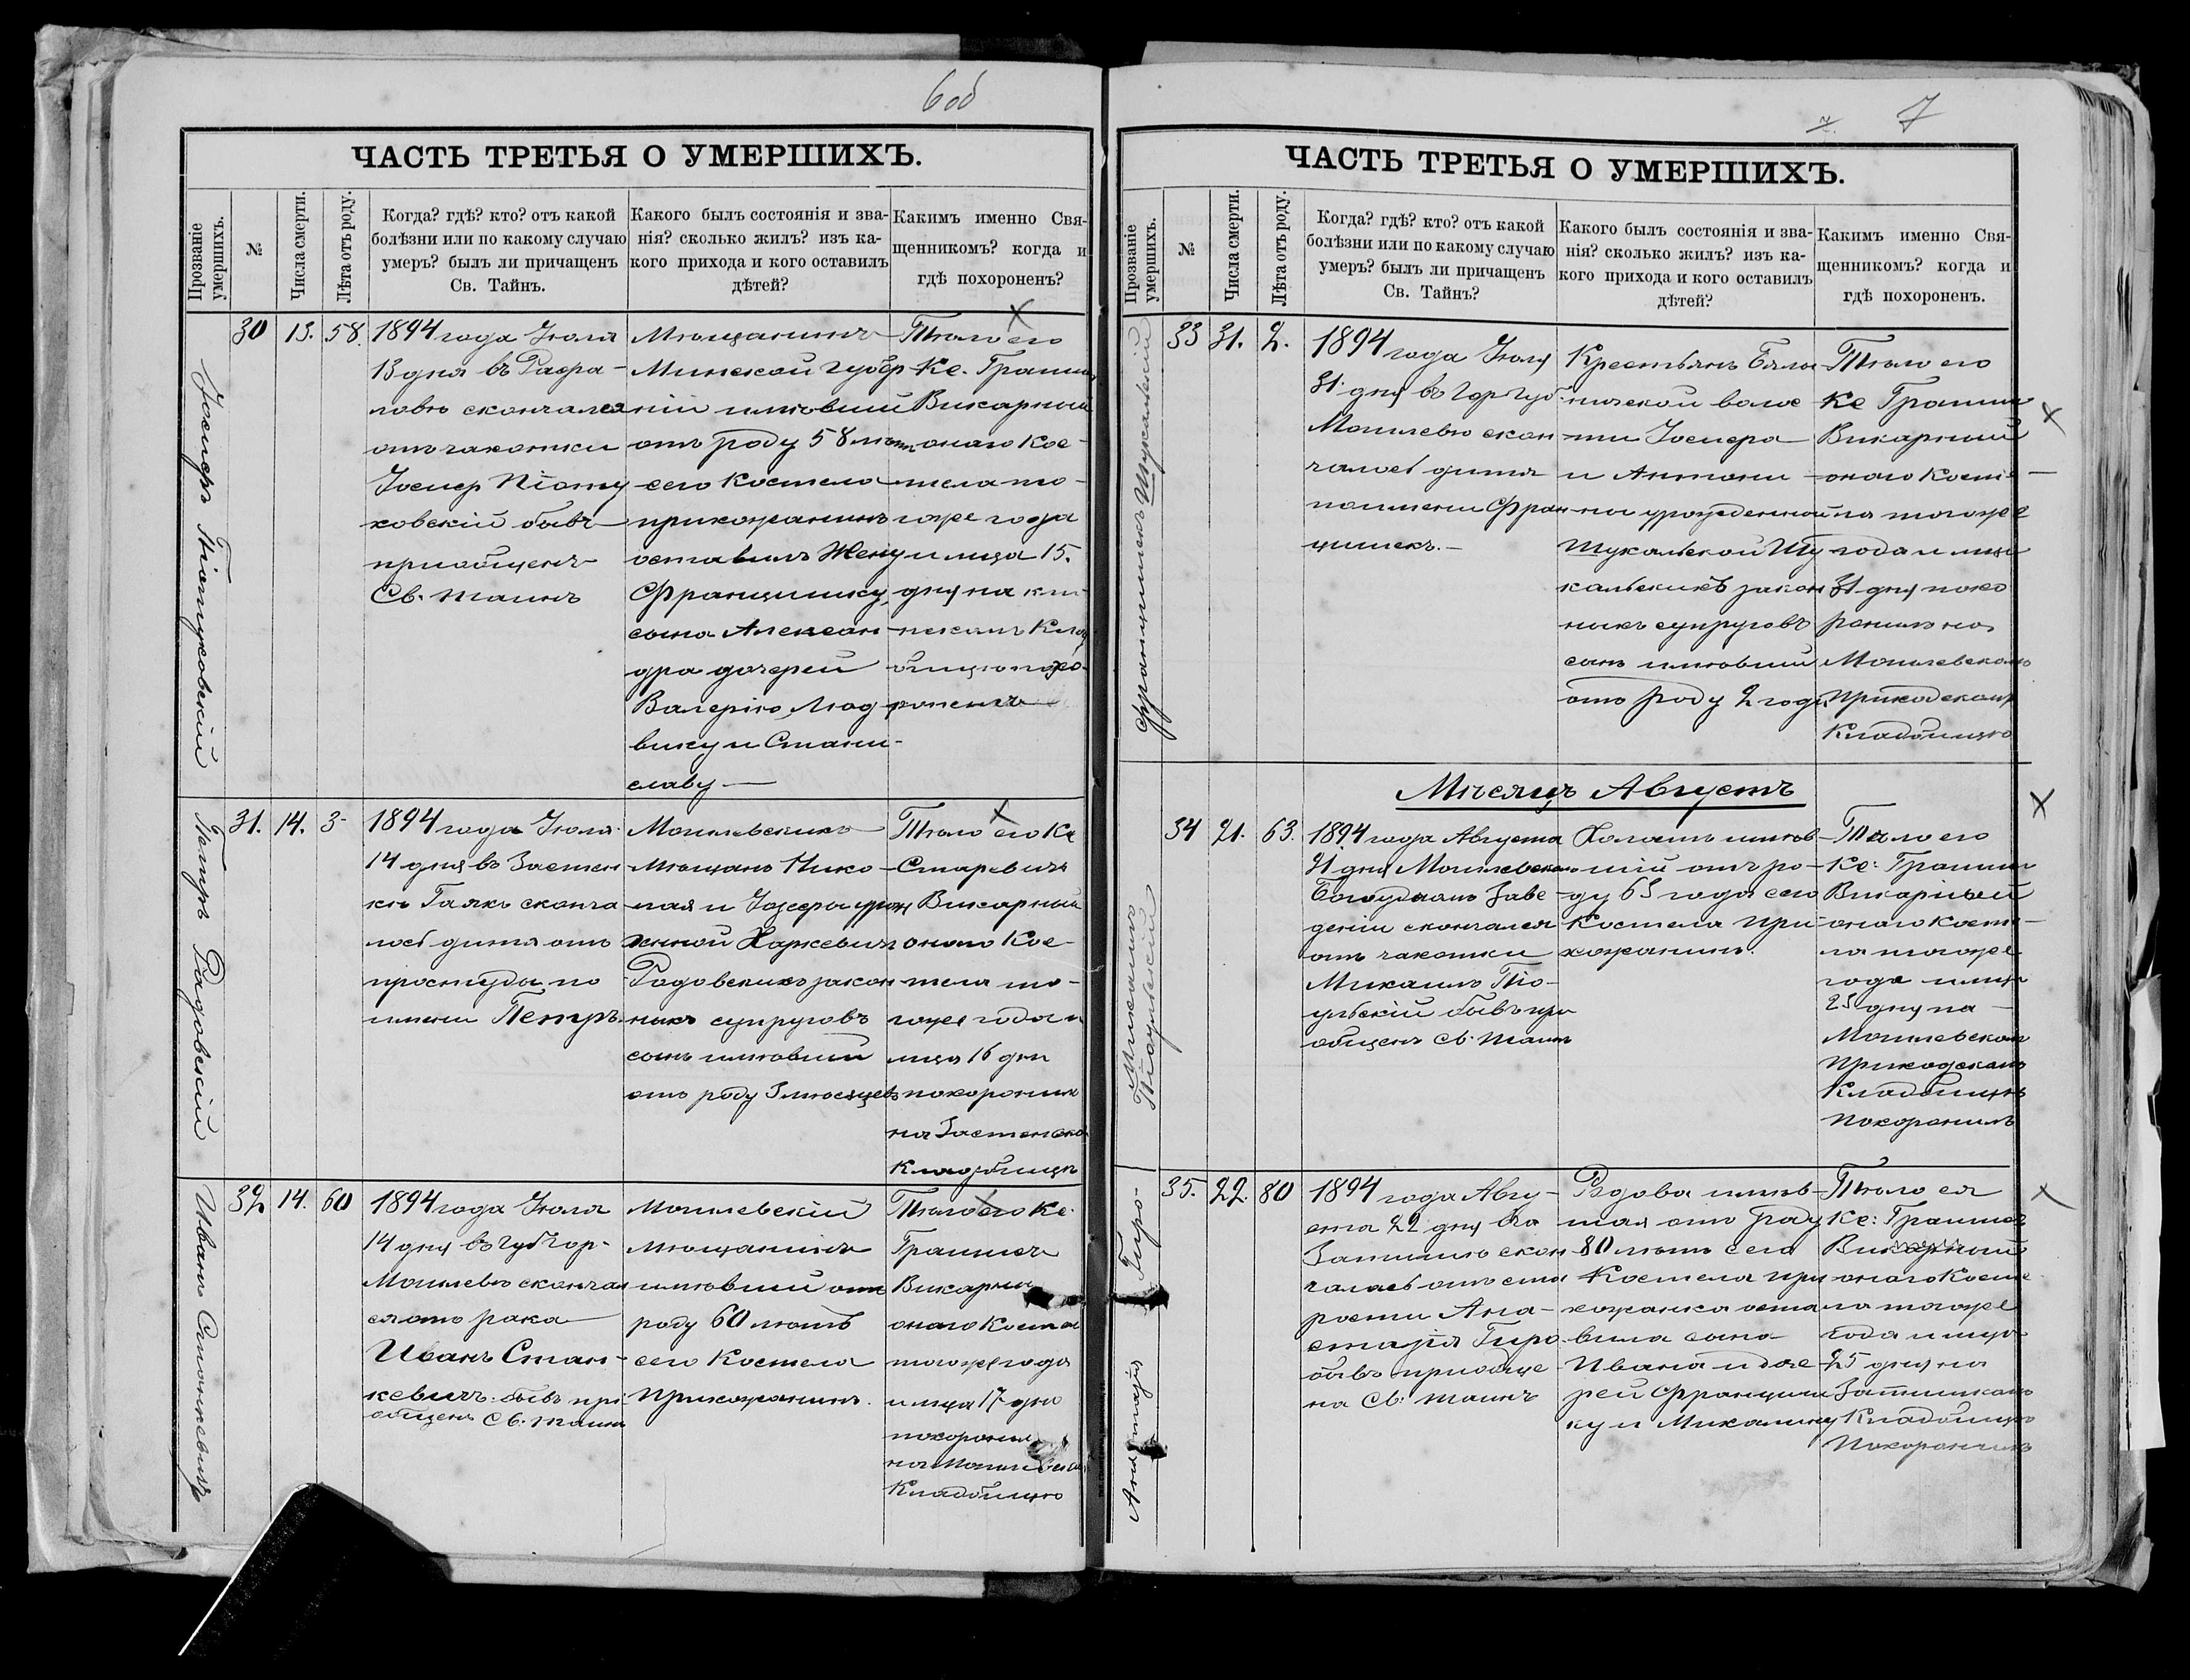 6 об
ЧАСТЬ ТРЕТЬЯ О УМЕРШИХЪ.
Прозваніе умершихъ.
№
Числа смерти.
Лѣта отъ роду.
Когда? гдѣ? кто? отъ какой
болѣзни или по какому случаю
умеръ? былъ ли причащенъ
Св. Тайнъ.
Какого былъ состоянія и зва-
нія? сколько жилъ? изъ ка-
кого прихода и кого оставилъ
дѣтей?
Какимъ именно Свя-
щенникомъ? когда и
гдѣ похороненъ?
30
13.
58.
1894 года Іюля
13 дня въ
скончался
отъ чахотки
Іосифъ
ховскій бывъ
пріобщенъ
Св. таинъ
Мѣщанинъ
Минской губер
ніи имѣвшій
отъ роду 58 лѣтъ
сего Костела
прихожанинъ
оставилъ жену
Францишку,
сына Алексан-
дра дочерей
Валерію, Люд
вику и Стани-
славу —
Тѣло его
Кс.
Викарный
онаго Кос-
тела то-
гоже года
и мѣца 15.
дня на
Клад
бищѣ похо-
роненъ
31.
14.
3
Петръ Радовскій
1894 года Іюля
14 дня въ Застен
кѣ сконча
лось дитя отъ
простуды по
имени Петръ.
Могилевскихъ
Мѣщанъ Нико-
лая и
Радовскихъ закон
ныхъ супруговъ
сынъ имѣвшій
отъ роду 3 мѣсяцевъ
Тѣло его Кс
Викарный
онаго Кос-
тела то-
гоже года и
мѣца 16 дня
похоронилъ
на
Кладбищѣ
32
14.
60
Иванъ Станкевичъ
1894 года Іюля
14 дня въ губ гор-
Могилевѣ скончал
ся отъ рака
Иванъ Стан-
кевичъ бывъ прі
общенъ Св. таинъ
Могилевскій
мѣщанинъ
имѣвшій отъ
роду 60 лѣтъ
сего Костела
Прихожанинъ.
Тѣло его Кс.
Викарный
онаго Костела
тогоже года
и мѣца 17 дня
похоронилъ
на
Кладбищѣ
7
ЧАСТЬ ТРЕТЬЯ О УМЕРШИХЪ.
Прозваніе умершихъ.
№
Числа смерти.
Лѣта отъ роду.
Когда? гдѣ? кто? отъ какой
болѣзни или по какому случаю
умеръ? былъ ли причащенъ
Св. Тайнъ?
Какого былъ состоянія и зва-
нія? сколько жилъ? изъ ка-
кого прихода и кого оставилъ
дѣтей?
Какимъ именно Свя-
щенникомъ? когда и
гдѣ похороненъ.
33
31.
2.
Францишекъ Шукальскій
1894 года Іюля
31 дня въ гор губ.
Могилевѣ скон
чалось дитя
по имени Фран
цишекъ. —
Крестьянъ
волос
ти Іосифа
и Антони
ны урожденной
Шукальской Шу
кальскихъ закон
ныхъ супруговъ
сынъ имѣвшій
отъ роду 2 года.
Тѣло его
Кс
Викарный
онаго Косте
ла тогоже
года и мѣца
31 дня похо
ронилъ на
Могилевскомъ
Приходскомъ
Кладбищѣ
Мѣсяцъ Августъ
34
21.
63.
1894 года Августа
21 дня Могилевском
Богоугдномъ Заве
деніи скончался
отъ чахотки
Михаилъ
бывъ прі
общенъ Св. таинъ
имѣв
шій отъ ро-
ду 63 года сего
Костела при
хожанинъ.
Тѣло его
Кс:
Викарный
онаго Косте
ла тогоже
года и мѣца
25 дня на
Могилевском
Приходскомъ
Кладбищѣ
похоронилъ
35.
22.
80
Анастазія Гиро-
1894 года Авгу-
ста 22 дня въ
скон
чалась отъ ста
рости Ана-
стазія Гиро
бывъ пріобще
на Св. таинъ
имѣв-
шая отъ роду
80 лѣтъ сего
Костела при
хожанка оста
вила сына
Ивана и доче
рей Францишку
и Михалину
Тѣло ея
Кс:
Викарный
онаго Косте
ла тогоже
года и мѣца
25 дня на
Кладбищѣ
Похоронилъ